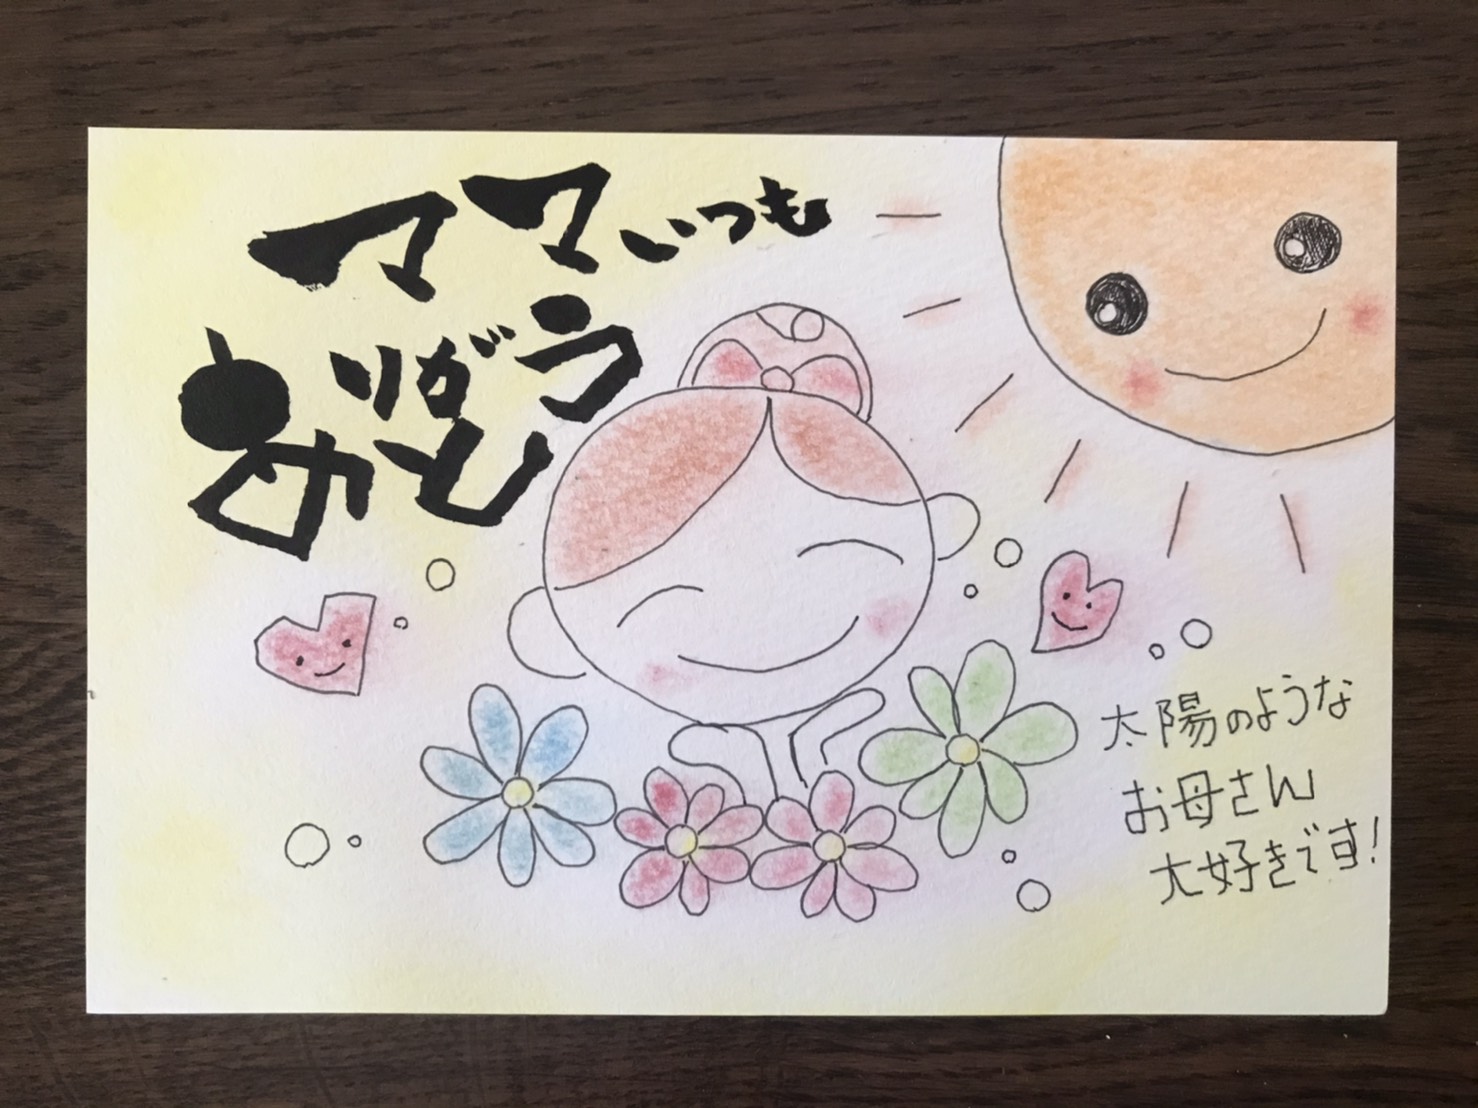 ママいつも
ありがとう
太陽のような
お母さん
大好きです!